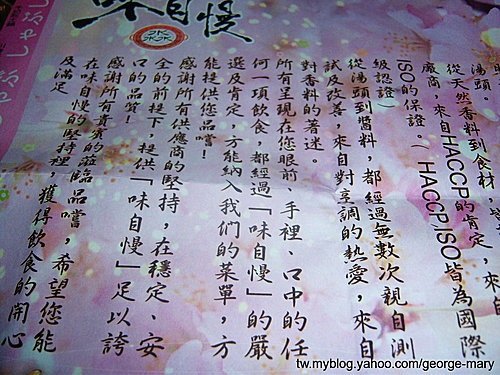 味自慢
湯頭。
從天然香料到食材，
廠商，來自HACCP的肯定，來
ISO的保證（HACCP、ISO皆為國際
級認證）
從湯頭到醬料，都經過無數次親自測
試及改善，來自對烹調的熱愛，來自
對香料的著迷。
所有呈現在您眼前、手裡、口中的任
何一項飲食，都經過「味自慢」的嚴
選及肯定，方能納入我們的菜單，方
能提供您品嚐！
感謝所有供應商的堅持，在穩定、安
全的前提下，提供「味自慢」足以誇
口的品質！
感謝所有貴賓的蒞臨品嚐，希望您能
在味自慢的堅持裡，獲得飲食的開心
及滿足
tw.myblog.yahoo.com/george-mary